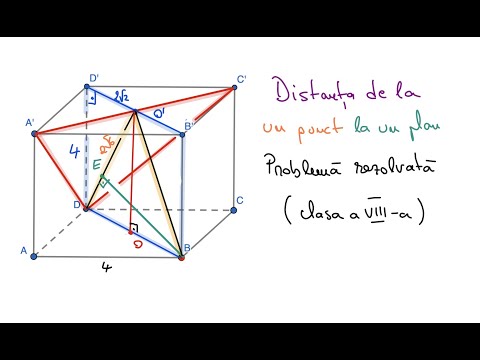 D'
2√2
C'
O'
A'
B'
4
2√6
E
D
C
O
A
4
B
Distanța de la
un punct la un plan
Problemă rezolvată
(clasa a VIII-a)